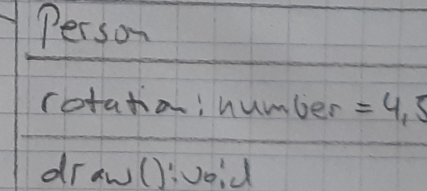 Person
rotation: number = 4,5
draw(): void